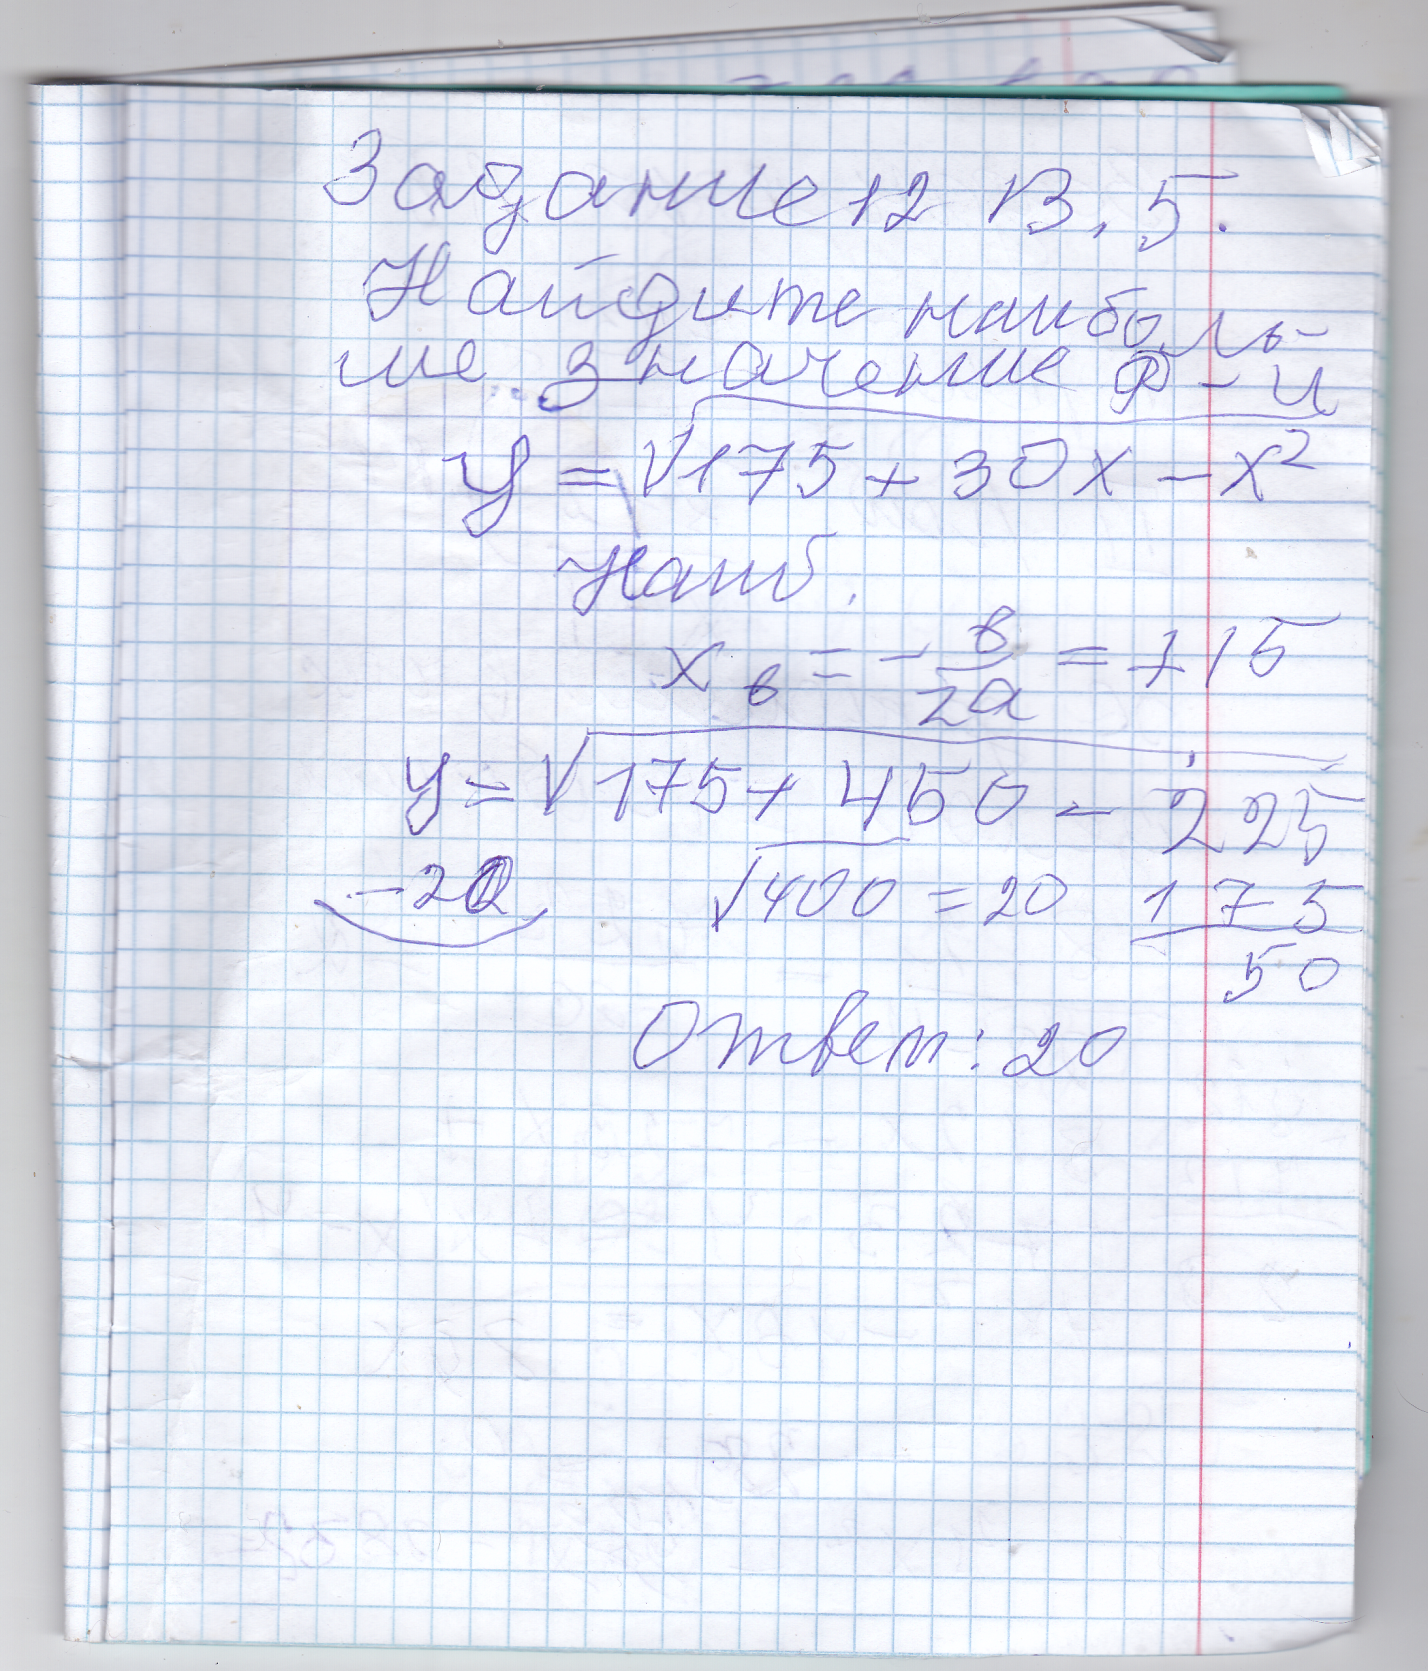 Задание 12 В. 5.
Найдите наиболь-
ше значение ф-и
y = √175 + 30x - x²
Наиб.
x в = - в/2a = +15
y = √175 + 450 - 225
-20 √400 = 20 175
50
Ответ: 20